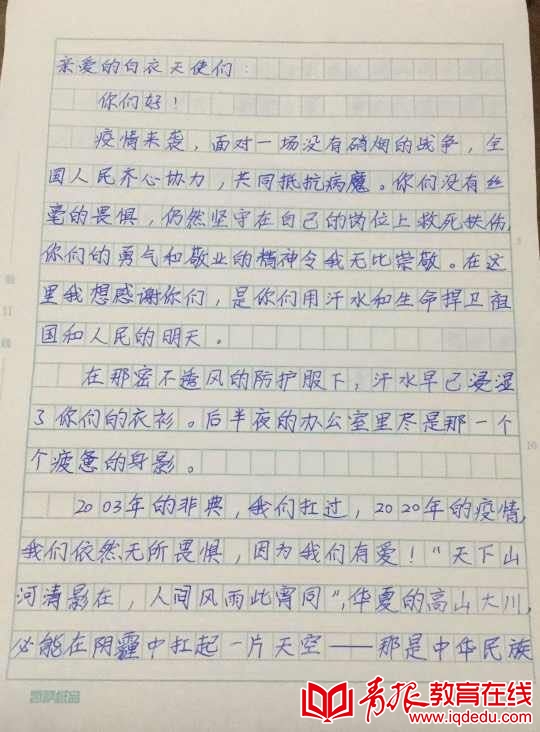 亲爱的白衣天使们:
你们好!
疫情来袭,面对一场没有硝烟的战争,全
国人民齐心协力,共同抵抗病魔。你们没有丝
毫的畏惧,仍然坚守在自己的岗位上救死扶伤,
你们的勇气和敬业的精神令我无比崇敬。在这
里我想感谢你们,是你们用汗水和生命捍卫祖
国和人民的明天。
在那密不透风的防护服下,汗水早已浸湿
了你们的衣衫。后半夜的办公室里尽是那一个
个疲惫的身影。
2003年的非典,我们扛过,2020年的疫情,
我们依然无所畏惧,因为我们有爱!"天下山
河清影在,人间风雨此宵同",华夏的高山大川,
必能在阴霾中扛起一片天空——那是中华民族
青报教育在线
www.iqdedu.com